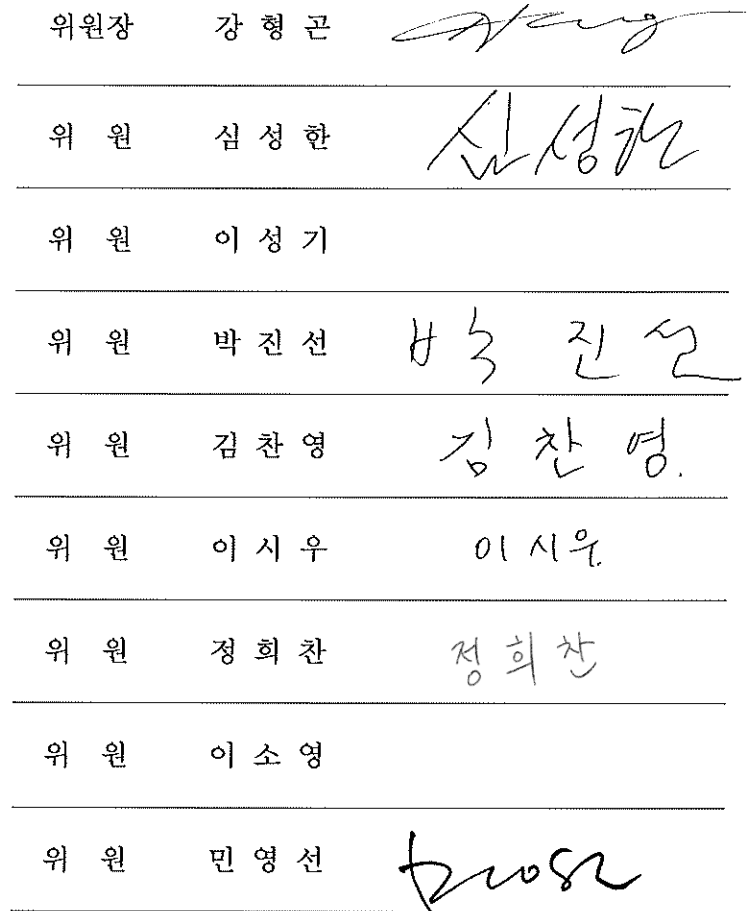 위원장 강 형 곤
위 원 심 성 한 심성한
위 원 이 성 기
위 원 박 진 선 박 진 선
위 원 김 찬 영 김 찬 영.
위 원 이 시 우 이시우
위 원 정 희 찬 정 희 찬
위 원 이 소 영
위 원 민 영 선